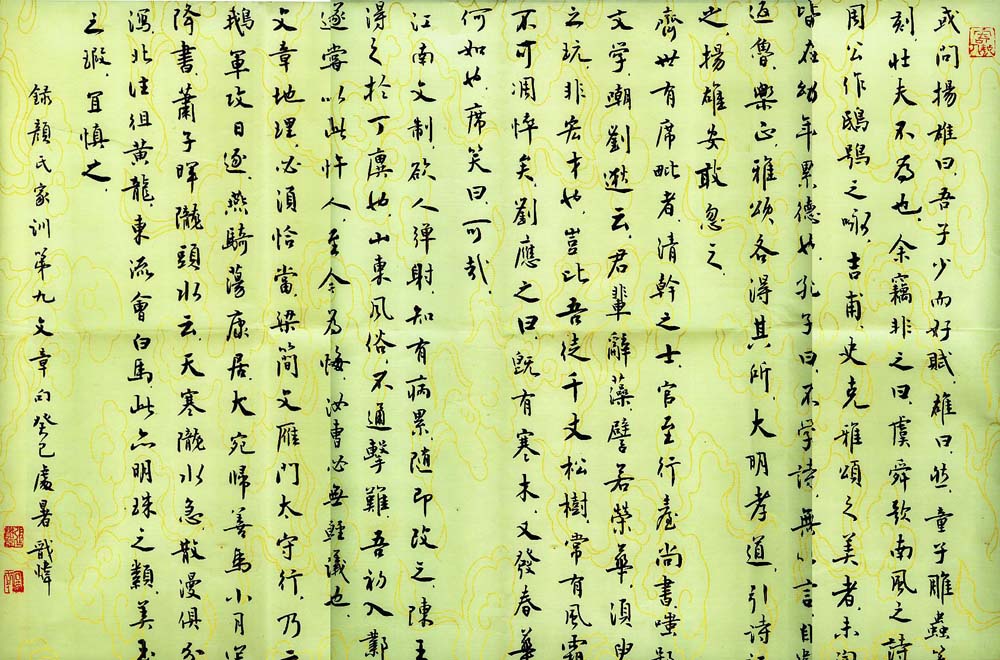 或问揚雄曰吾子少而好賦雄曰然童子雕蟲篆
刻壮夫不為也余竊非之曰虞舜歌南風之詩
周公作鴟鴞之咏吉甫史克雅頌之美者未聞
皆在幼年累德也孔子曰不学詩無以言自衛
返魯樂正雅頌各得其所大明孝道引詩証
之揚雄安敢忽之
齊世有席毗者清幹之士官至行臺尚書嗤鄙
文学嘲劉逖云君輩辭藻譬若榮華須臾
之玩非宏才也豈比吾徒千丈松樹常有風霜
不可凋悴矣劉應之曰既有寒木又發春華
何如也席笑曰可哉
江南文制欲人彈射知有病累随即改之陳王
得之於丁廙也山東風俗不通擊難吾初入鄴
遂嘗以此忤人至今為悔汝曹必無輕議也
文章地理必須恰當梁簡文雁門太守行乃云
鵝軍攻日逐燕騎蕩康居大宛帰善馬小月送
降書蕭子暉隴頭水云天寒隴水急散漫俱分
瀉北注徂黄龍東流會白馬此亦明珠之纇美玉
之瑕宜慎之
録顔氏家训第九文章句癸巳處暑戬幃